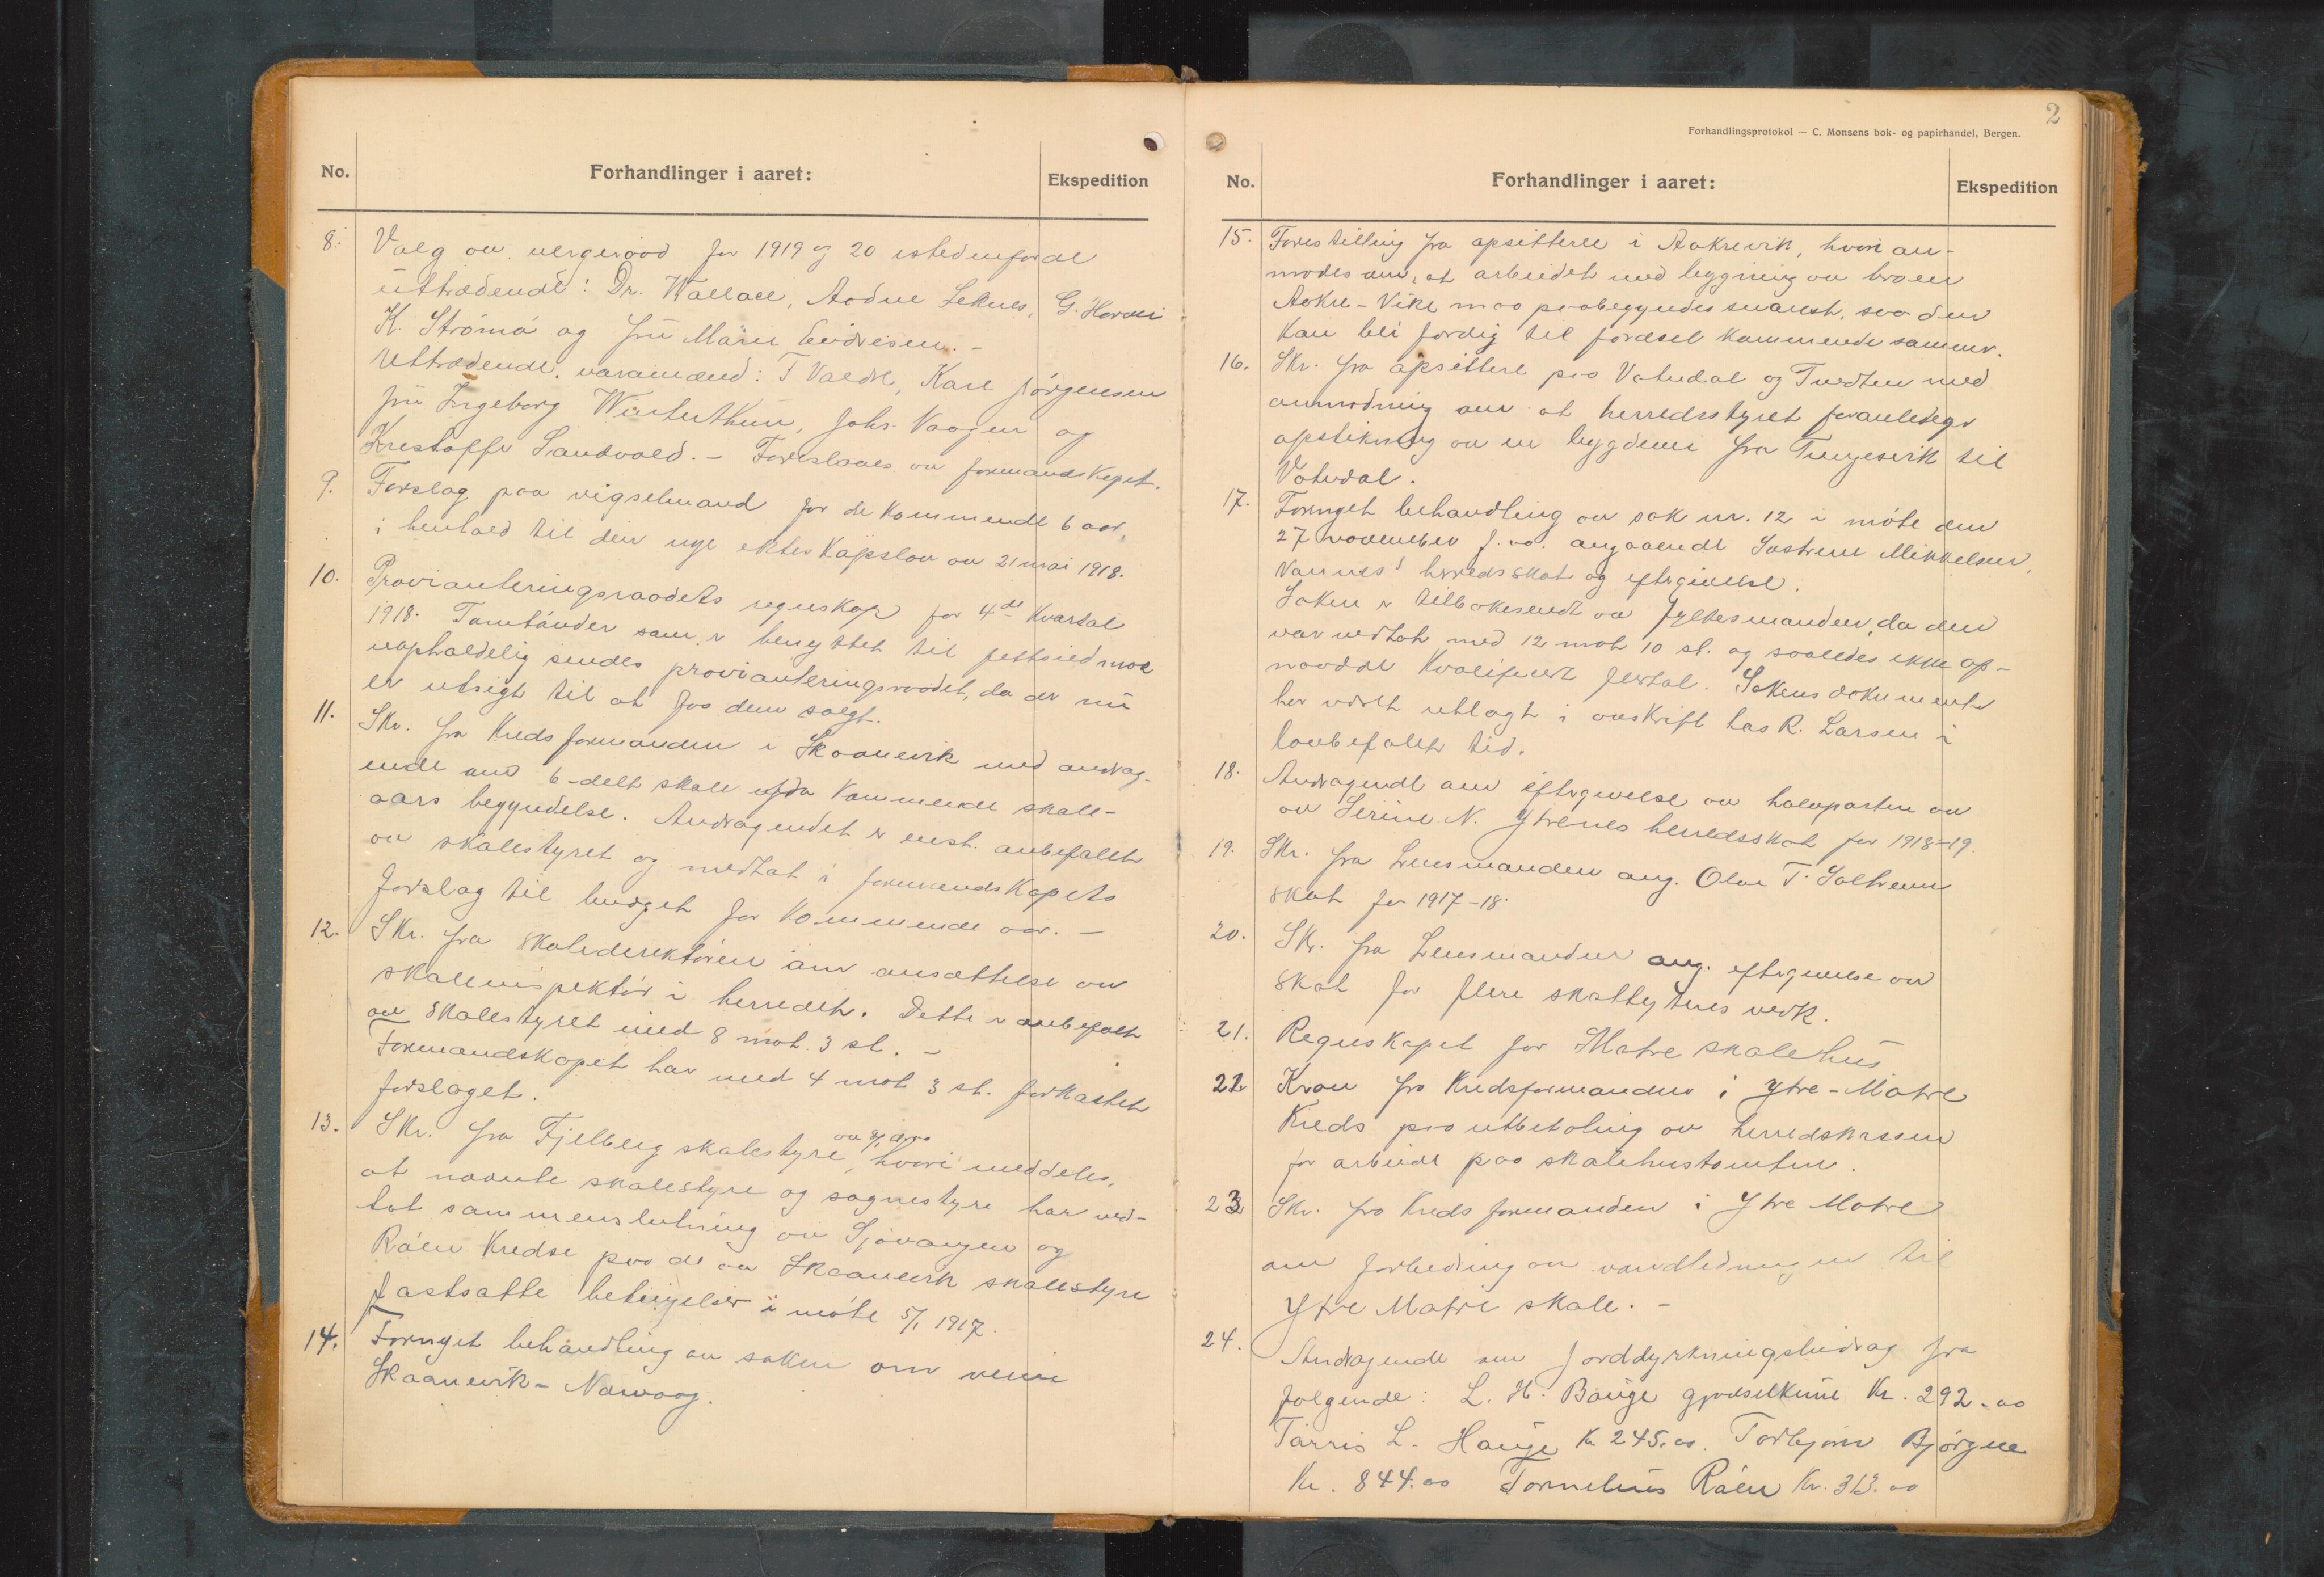 No.
Forhandlinger i aaret:
Ekspedition
8. Valg av vergeraad for 1919 og 20 istedenfor de
uttrædende: Dr. Wallace, Aadne Leknes, G. Havn
K. Strømø og fru Marie Eidvisen. –
Uttrædende varamænd: T Valdre, Karl Jørgensen
fru Ingeborg Winterthun, Johs. Vaagen og
Kristoffer Sandvold. – Foreslaaes av formandskapet.
9. Forslag paa vigselmand for de kommende 6 aar,
i henhold til den nye ekteskapslov av 21 mai 1918.
10. Provianteringsraadets regnskap for 4de kvartal
1918. Tomtønder som er benyttet til fettsild maa
uopholdelig sendes provianteringsraadet, da der nu
er utsigt til at faa dem solgt.
11. Skr. fra kredsformanden i Skaanevik med andrag-
ende om 6-delt skole fra kommende skole-
aars begyndelse. Andragendet er enst. anbefalet
av skolestyret og medtat i formandskapets
forslag til budget for kommende aar. –
12. Skr. fra skoledirektøren om ansættelse av
skoleinspektør i herredet. Dette er anbefalt
av skolestyret med 8 mot 3 st. –
Formandskapet har med 4 mot 3 st. forkastet
forslaget.
13. Skr. fra Fjelberg skolestyre, hvori meddeles,
at nævnte skolestyre og sognestyre har ved-
tat sammenslutning av Sjøvangen og
Røen kredse paa de av Skaanevik skolestyre
fastsatte betingelser i møte 5/1 1917.
14. Fornyet behandling av saken om veien
Skaanevik – Norvaag.
2
Forhandlingsprotokol — C. Monsens bok- og papirhandel, Bergen.
No.
Forhandlinger i aaret:
Ekspedition
15. Forestilling fra opsittere i Aakrevik, hvori an-
modes om, at arbeidet med bygning av broen
Aakre – Vike maa paabegyndes snarest, saa den
kan bli færdig til færdsel kommende sommer.
16. Skr. fra opsittere paa Vatnedal og Tvedten med
anmodning om at herredsstyret foranlediger
opstikning av en bygdevei fra Tungesvik til
Vatnedal.
17. Fornyet behandling av sak nr. 12 i møte den
27 november f. aa. angaaende Mikkelsen
Vannes' herredsskat og eftergivelse.
Saken er tilbakesendt av fylkesmanden, da den
var vedtat med 12 mot 10 st. og saaledes ikke op-
naadde kvalificert flertal. Sakens dokumenter
har været utlagt i avskrift hos R. Larsen i
lovbefalet tid.
18. Andragende om eftergivelse av halvparten av
av Serine N. Ytrenes herredsskat for 1918–19.
19. Skr. fra Lensmanden ang. Olav T. Solheim
skat for 1917–18.
20. Skr. fra Lensmanden ang. eftergivelse av
skat for flere skatteyteres vedk.
21. Regnskapet for Matre skolehus
22 Krav fra kredsformanden i Ytre-Matre
kreds paa utbetaling av herredskassen
for arbeide paa skolehustomten.
23 Skr. fra kredsformanden i Ytre Matre
om forbedring av vandledningen til
Ytre Matre skole. –
24. Andragende om jorddyrkningsbidrag fra
følgende: L. H. Bauge gjødselkum Kr. 292.00
Tørris L. Hauge Kr. 245.00. Torbjørn Bjørgne
Kr. 844.00 Tornelius Røen Kr. 313.00